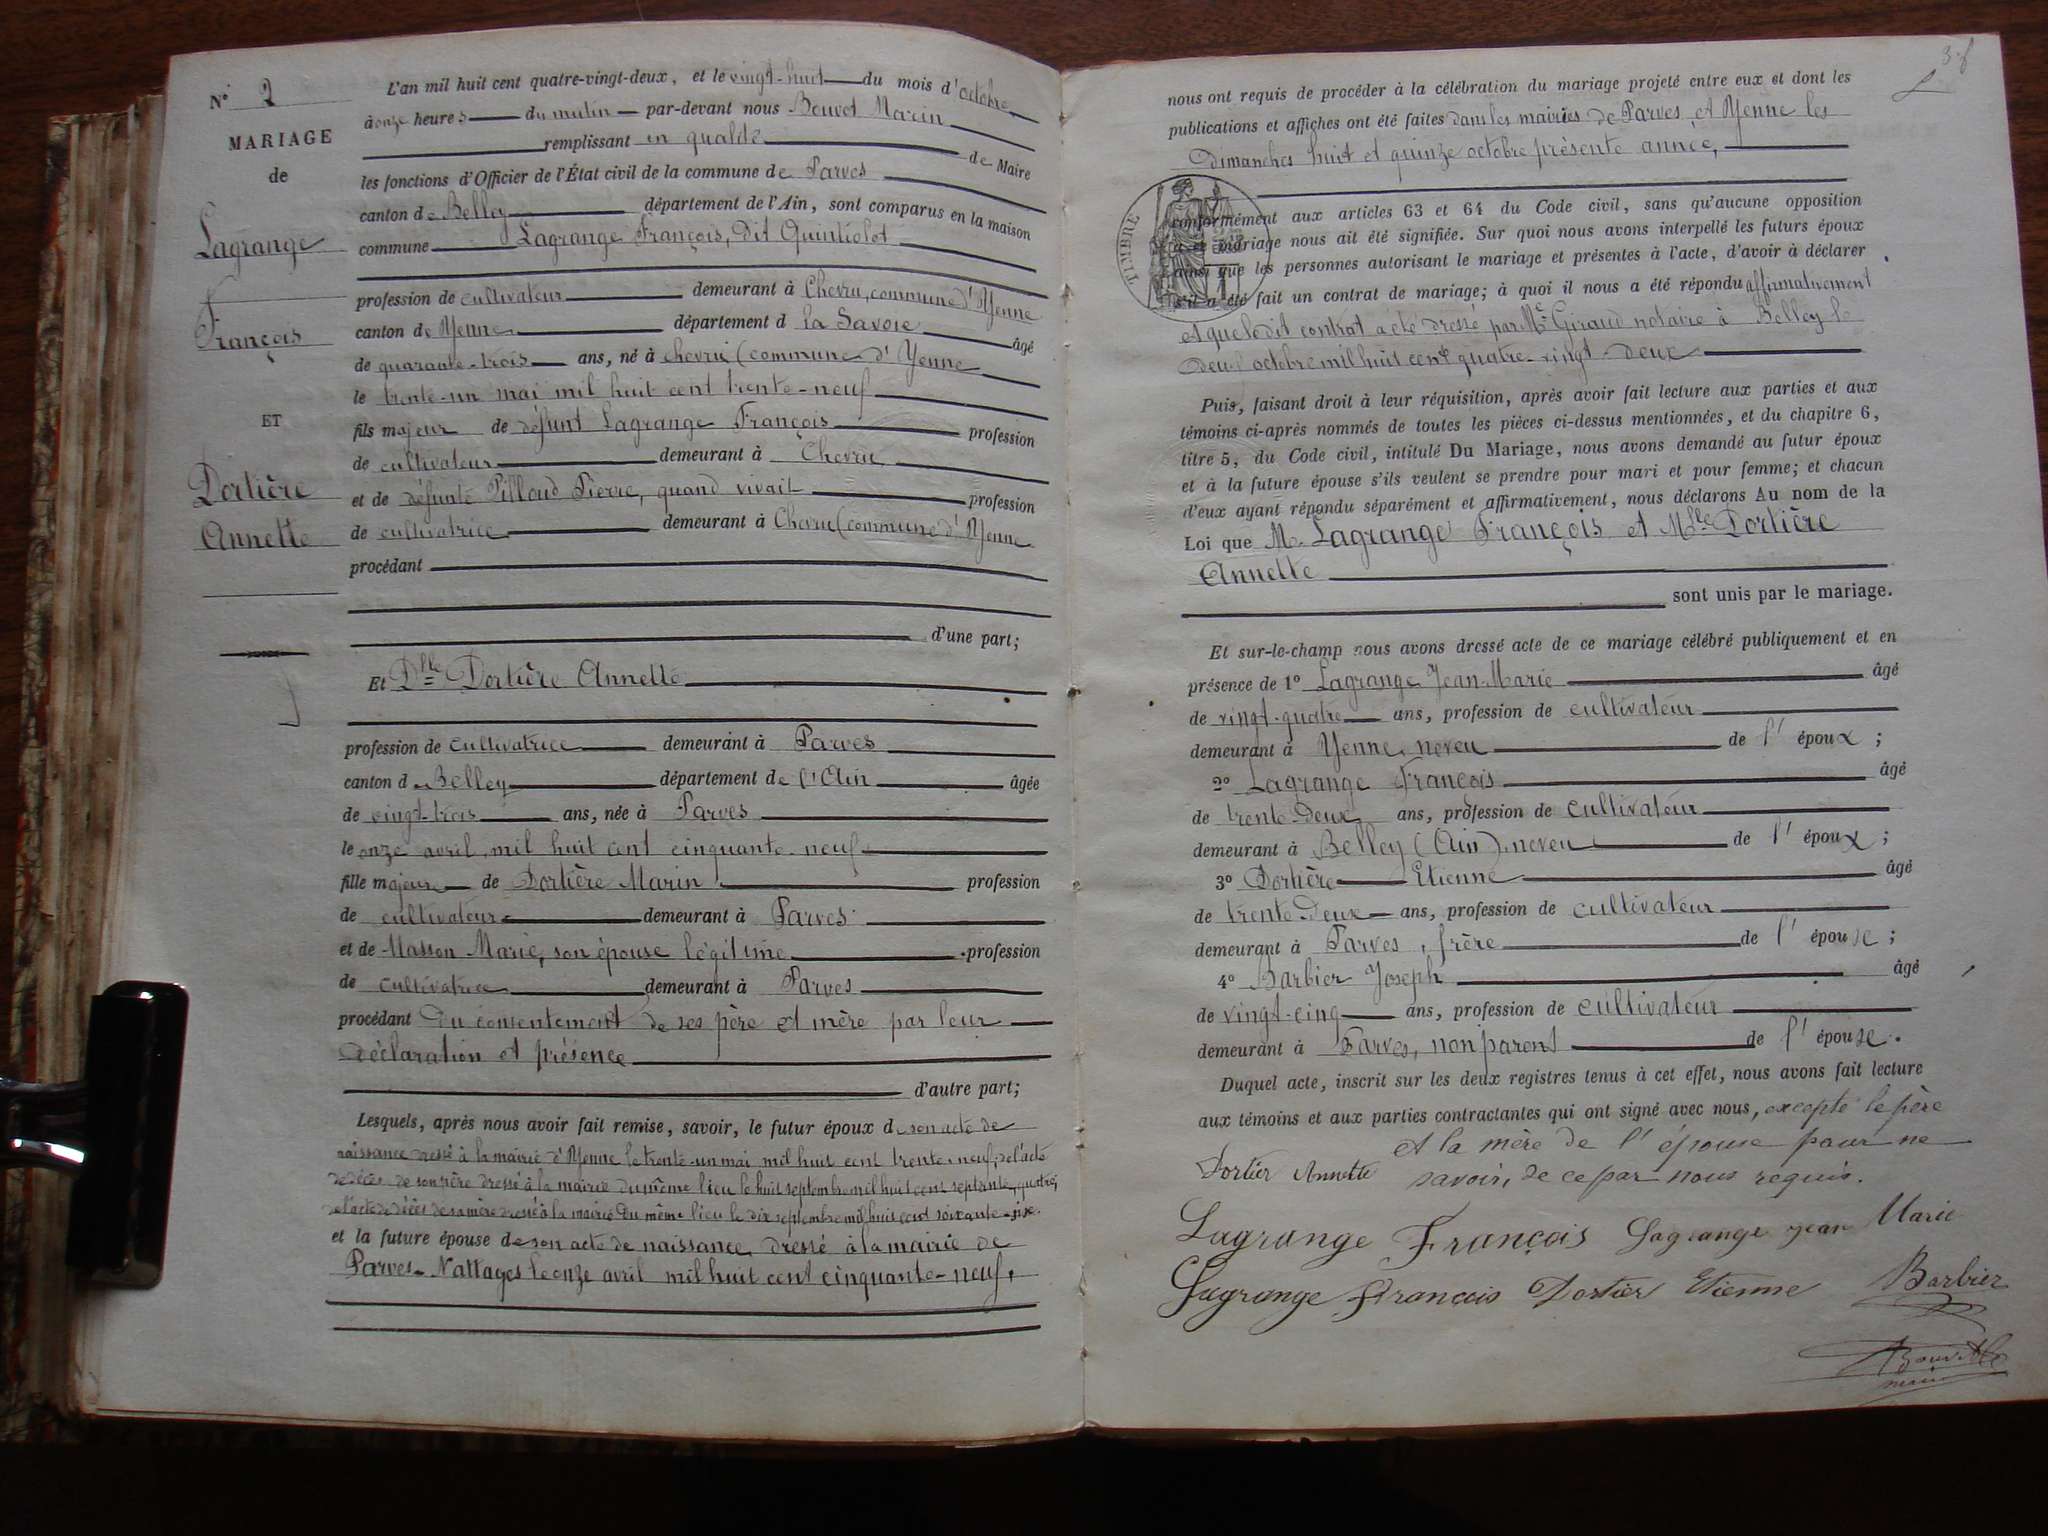 N° 2
MARIAGE
de
Lagrange
François
ET
Dortière
Annette
L'an mil huit cent quatre-vingt-deux, et le vingt-huit du mois d'octobre
à onze heures du matin par-devant nous Bouvet Marin
remplissant en qualité de Maire
les fonctions d'Officier de l'État civil de la commune de Parves
canton de Belley département de l'Ain, sont comparus en la maison
commune Lagrange François, dit Quintiolet
profession de cultivateur demeurant à Chevru, commune d'Yenne
canton de Yenne département d la Savoie âgé
de quarante-trois ans, né à Chevru (commune d'Yenne
le trente-un mai mil huit cent trente-neuf
fils majeur de défunt Lagrange François profession
de cultivateur demeurant à Chevru
et de défunte Pilloud Pierre, quand vivait profession
de cultivatrice demeurant à Chevru (commune d'Yenne
procédant
d'une part;
Et Dlle Dortière Annette
profession de cultivatrice demeurant à Parves
canton de Belley département de l'Ain âgée
de vingt-trois ans, née à Parves
le onze avril mil huit cent cinquante-neuf
fille majeure de Dortière Marin profession
de cultivateur demeurant à Parves
et de Masson Marie, son épouse légitime profession
de cultivatrice demeurant à Parves
procédant du consentement de ses père et mère par leur
déclaration et présence
d'autre part;
Lesquels, après nous avoir fait remise, savoir, le futur époux de son acte de
naissance dressé à la mairie d'Yenne le trente-un mai mil huit cent trente-neuf; de l'acte
de décès de son père dressé à la mairie du même lieu le huit septembre mil huit cent septante quatre;
de l'acte de décès de sa mère dressé à la mairie du même lieu le dix septembre mil huit cent soixante-six.
et la future épouse de son acte de naissance dressé à la mairie de
Parves-Nattages le onze avril mil huit cent cinquante-neuf,
nous ont requis de procéder à la célébration du mariage projeté entre eux et dont les
publications et affiches ont été faites dans les mairies de Parves et Yenne les
Dimanches huit et quinze octobre présente année,
TIMBRE
conformément aux articles 63 et 64 du Code civil, sans qu'aucune opposition
à ce mariage nous ait été signifiée. Sur quoi nous avons interpellé les futurs époux
ainsi que les personnes autorisant le mariage et présentes à l'acte, d'avoir à déclarer
s'il a été fait un contrat de mariage; à quoi il nous a été répondu affirmativement
et que ledit contrat a été dressé par Me Giraud notaire à Belley le
Deux octobre mil huit cent quatre-vingt-deux
Puis, faisant droit à leur réquisition, après avoir fait lecture aux parties et aux
témoins ci-après nommés de toutes les pièces ci-dessus mentionnées, et du chapitre 6,
titre 5, du Code civil, intitulé Du Mariage, nous avons demandé au futur époux
et à la future épouse s'ils veulent se prendre pour mari et pour femme; et chacun
d'eux ayant répondu séparément et affirmativement, nous déclarons Au nom de la
Loi que M. Lagrange François et Mlle Dortière
Annette
sont unis par le mariage.
Et sur-le-champ nous avons dressé acte de ce mariage célébré publiquement et en
présence de 1° Lagrange Jean-Marie âgé
de vingt-quatre ans, profession de cultivateur
demeurant à Yenne, neveu de l'époux;
2° Lagrange François âgé
de trente-deux ans, profession de cultivateur
demeurant à Belley (Ain), neveu de l'époux;
3° Dortière Etienne âgé
de trente-deux ans, profession de cultivateur
demeurant à Parves, frère de l'épouse;
4° Barbier Joseph âgé
de vingt-cinq ans, profession de cultivateur
demeurant à Parves, non parent de l'épouse.
Duquel acte, inscrit sur les deux registres tenus à cet effet, nous avons fait lecture
aux témoins et aux parties contractantes qui ont signé avec nous, excepté le père
et la mère de l'épouse pour ne
savoir, de ce par nous requis.
Dortier Annette
Lagrange François Lagrange Jean Marie
Lagrange François Dortier Etienne Barbier